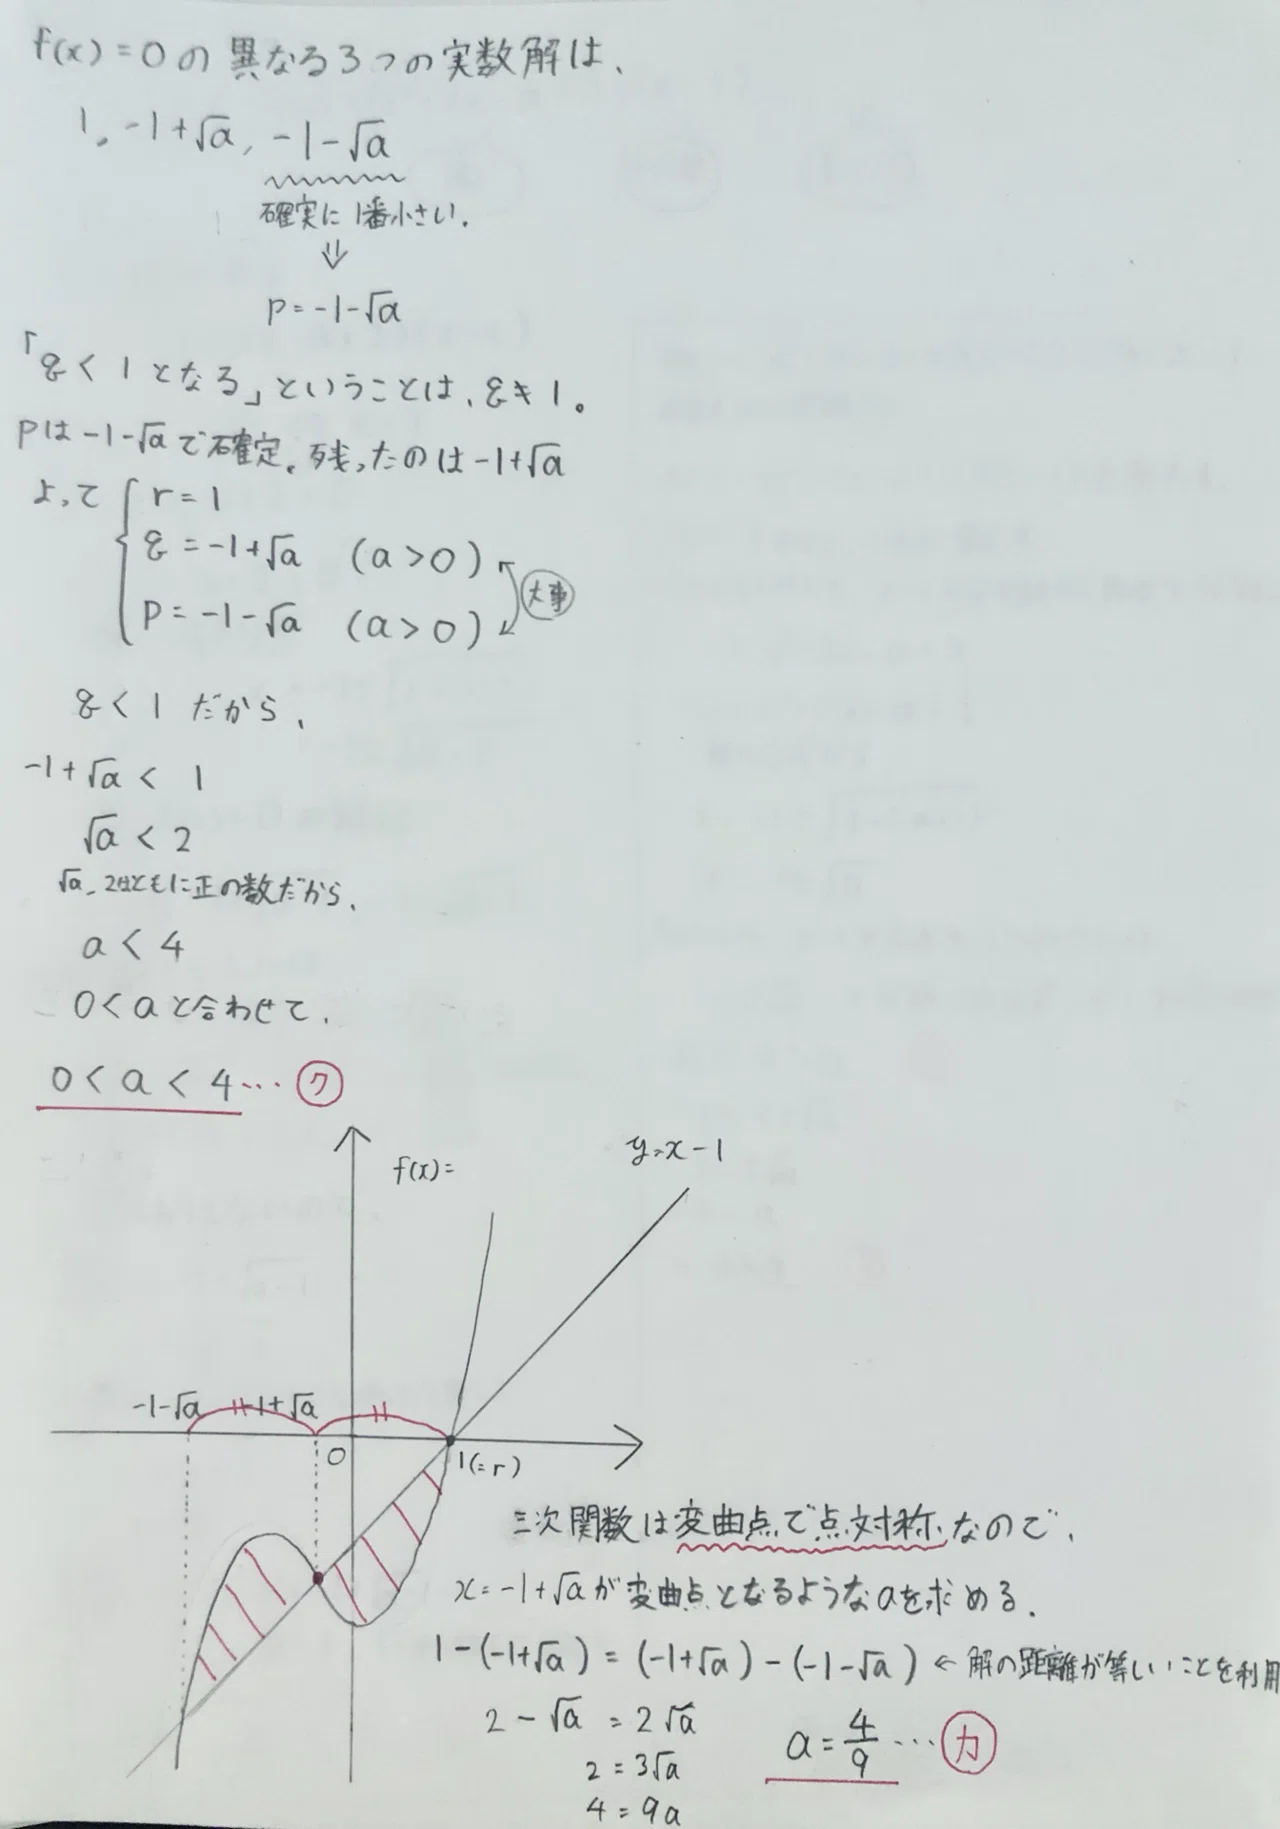 f(x)=0の異なる3つの実数解は、
1, -1+√a, -1-√a
確実に1番小さい.
⇓
p=-1-√a
「q<1となる」ということは、q≠1。
pは-1-√aで確定。残ったのは-1+√a
よって { r=1
q=-1+√a (a>0)
p=-1-√a (a>0)
大事
q<1 だから、
-1+√a < 1
√a < 2
√a、2はともに正の数だから、
a<4
0<aと合わせて、
0<a<4… ク
f(x)=
y=x-1
-1-√a
-1+√a
0
1(=r)
三次関数は変曲点で点対称なので、
x=-1+√aが変曲点となるようなaを求める.
1-(-1+√a)=(-1+√a)-(-1-√a) ← 解の距離が等しいことを利用
2-√a=2√a
2=3√a
4=9a
a=4/9… カ